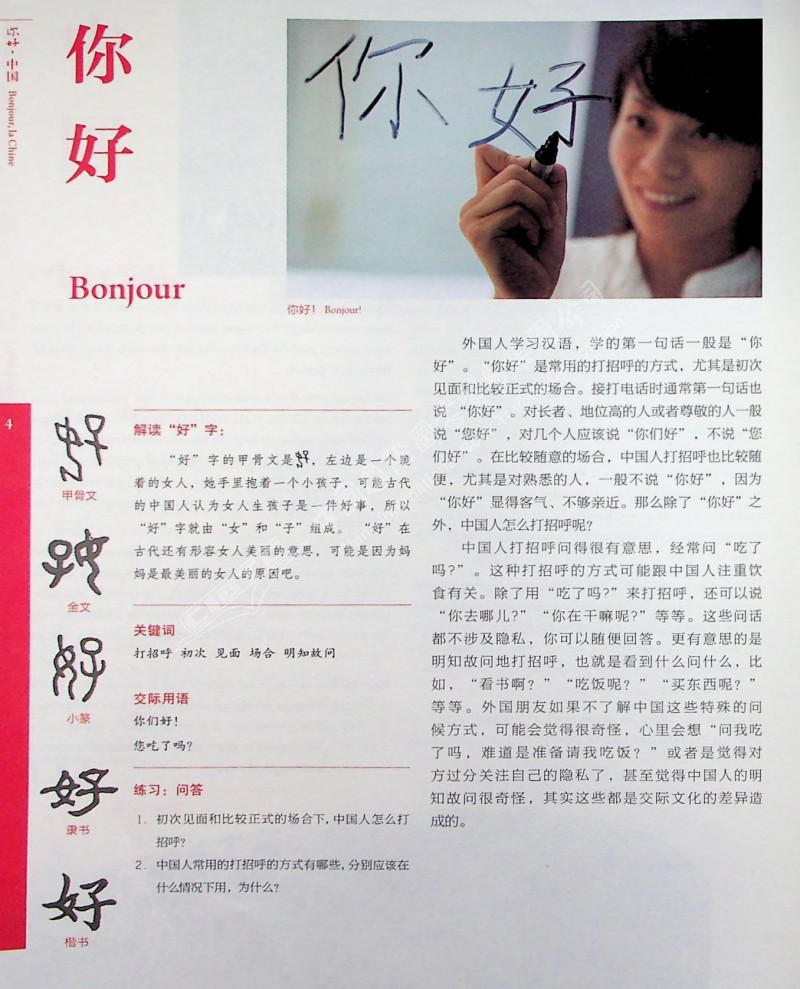 你好·中国 Bonjour, la Chine
你
好
Bonjour
你好
你好！ Bonjour!
4
甲骨文
金文
小篆
隶书
楷书
解读“好”字：
“好”字的甲骨文是好，左边是一个跪
着的女人，她手里抱着一个小孩子，可能古代
的中国人认为女人生孩子是一件好事，所以
“好”字就由“女”和“子”组成。“好”在
古代还有形容女人美丽的意思，可能是因为妈
妈是最美丽的女人的原因吧。
关键词
打招呼 初次 见面 场合 明知故问
交际用语
你们好！
您吃了吗？
练习：问答
1. 初次见面和比较正式的场合下，中国人怎么打
招呼？
2. 中国人常用的打招呼的方式有哪些，分别应该在
什么情况下用，为什么？
外国人学习汉语，学的第一句话一般是“你
好”。“你好”是常用的打招呼的方式，尤其是初次
见面和比较正式的场合。接打电话时通常第一句话也
说“你好”。对长者、地位高的人或者尊敬的人一般
说“您好”，对几个人应该说“你们好”，不说“您
们好”。在比较随意的场合，中国人打招呼也比较随
便，尤其是对熟悉的人，一般不说“你好”，因为
“你好”显得客气、不够亲近。那么除了“你好”之
外，中国人怎么打招呼呢？
中国人打招呼问得很有意思，经常问“吃了
吗？”。这种打招呼的方式可能跟中国人注重饮
食有关。除了用“吃了吗？”来打招呼，还可以说
“你去哪儿？”“你在干嘛呢？”等等。这些问话
都不涉及隐私，你可以随便回答。更有意思的是
明知故问地打招呼，也就是看到什么问什么，比
如，“看书啊？”“吃饭呢？”“买东西呢？”
等等。外国朋友如果不了解中国这些特殊的问
候方式，可能会觉得很奇怪，心里会想“问我吃
了吗，难道是准备请我吃饭？”或者是觉得对
方过分关注自己的隐私了，甚至觉得中国人的明
知故问很奇怪，其实这些都是交际文化的差异造
成的。